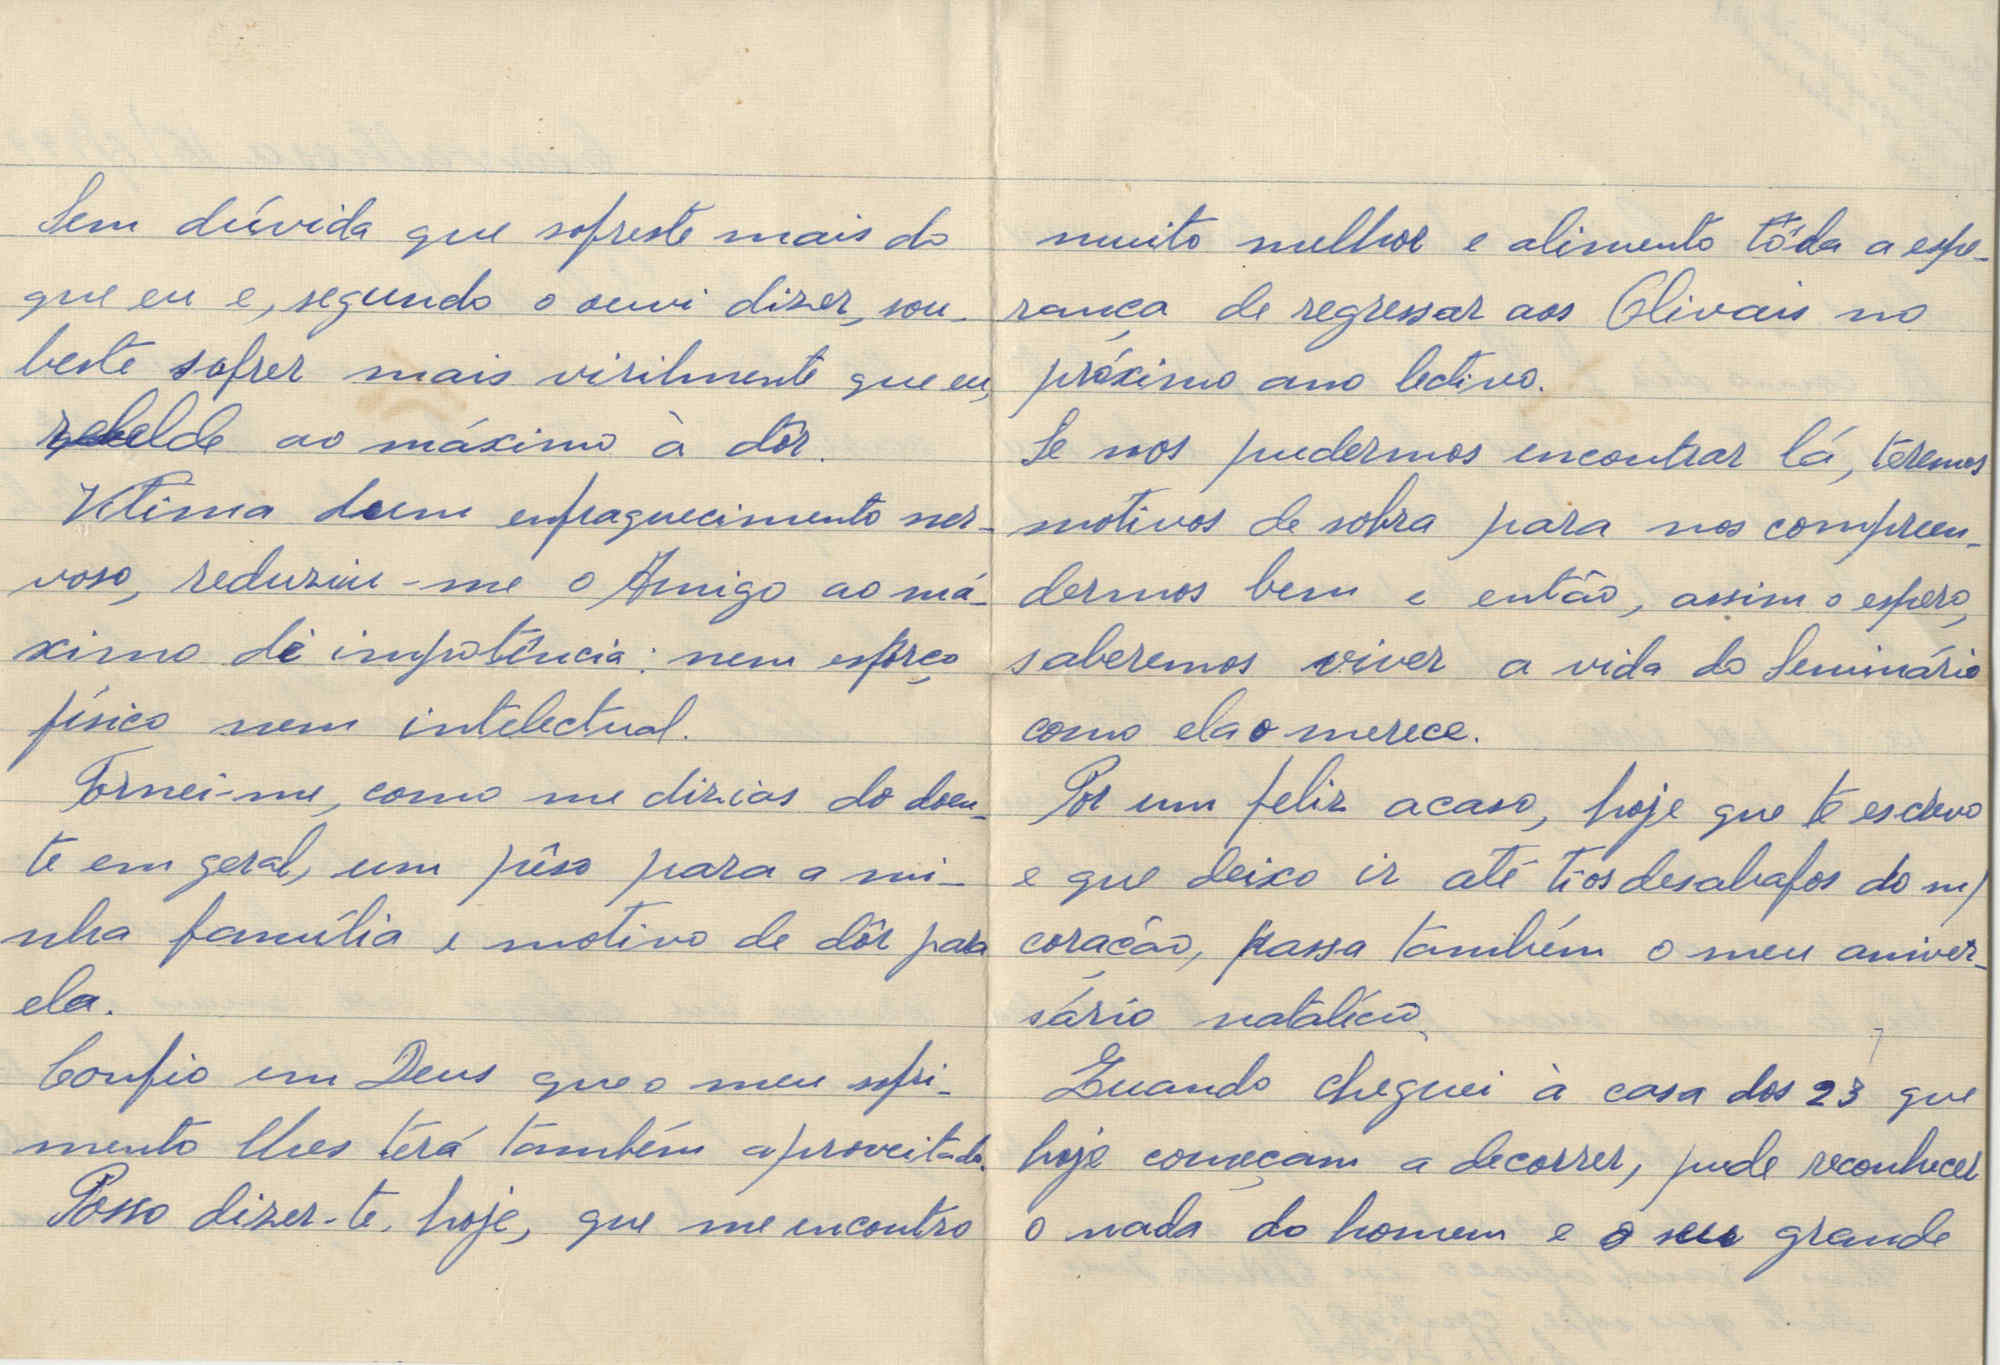 Sem dúvida que sofreste mais do
que eu e, segundo o ouvi dizer, sou-
beste sofrer mais virilmente que eu,
rebelde ao máximo à dôr.
Vítima dum enfraquecimento ner-
voso, reduziu-me o Amigo ao má-
ximo de impotência: nem esforço
físico nem intelectual.
Tornei-me, como me dizias do doen-
te em geral, um pêso para a mi-
nha família e motivo de dôr para
ela.
Confio em Deus que o meu sofri-
mento lhes terá também aproveitado.
Posso dizer-te, hoje, que me encontro
muito melhor e alimento tôda a espe-
rança de regressar aos Olivais no
próximo ano lectivo.
Se nos pudermos encontrar lá, teremos
motivos de sobra para nos compreen-
dermos bem e então, assim o espero,
saberemos viver a vida do Seminário
como ela o merece.
Por um feliz acaso, hoje que te escrevo
e que deixo ir até ti os desabafos do m/
coração, passa também o meu aniver-
sário natalício.
Quando cheguei à casa dos 23 que
hoje começam a decorrer, pude reconhecer
o nada do homem e o seu grande